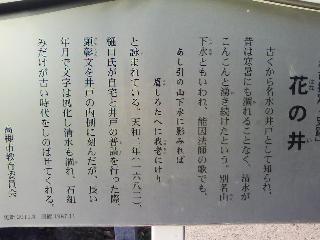 花の井
古くから名水の井戸として知られ、
昔は寒暑にも涸れることなく、清水が
こんこんと湧き続けたという。別名山
下水ともいわれ、能因法師の歌でも、
あし引の山下水に影みれば
眉しろたへに我老にけり
と詠まれている。天和二年(一六八二)、
樋口氏が自宅と井戸の普請を行った際、
顕彰文を井戸の内側に刻んだが、長い
年月で文字は風化し清水も涸れ、石組
みだけが古い時代をしのばせてくれる。
高槻市教育委員会